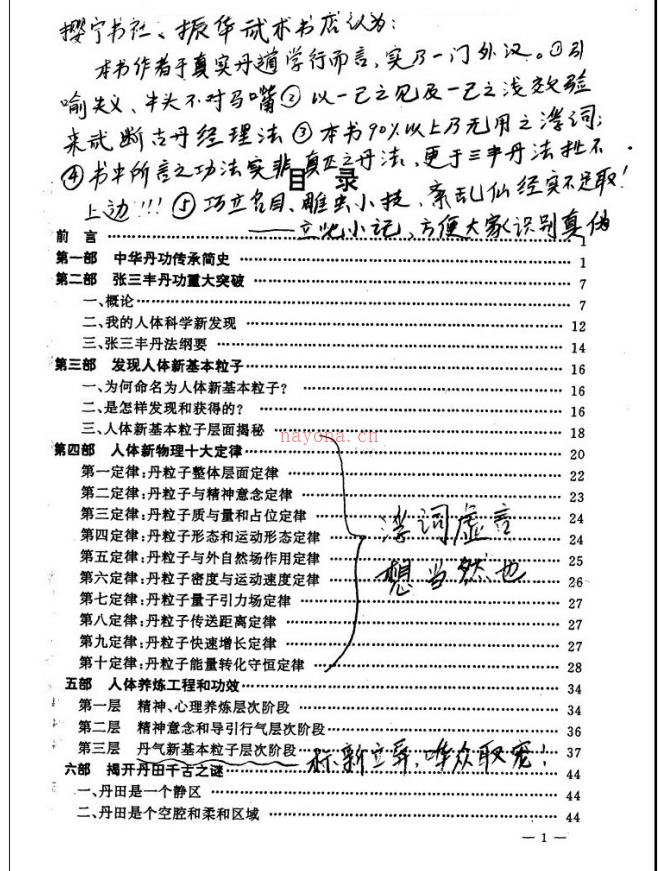 撄宁书社、振华武术书店认为:
本书作者于真实丹道学行而言,实乃一门外汉。①引
喻失义、牛头不对马嘴②以一己之见及一己之浅效验
来武断古丹经理法③本书90%以上乃无用之浮词;
④书中所言之功法实非真正之丹法,更于三丰丹法扯不
上边!!!⑤巧立名目、雕虫小技,紊乱仙经实不足取!
——立此小记,方便大家识别真伪
目录
前言 1
第一部 中华丹功传承简史 1
第二部 张三丰丹功重大突破 7
一、概论 7
二、我的人体科学新发现 12
三、张三丰丹法纲要 14
第三部 发现人体新基本粒子 16
一、为何命名为人体新基本粒子? 16
二、是怎样发现和获得的? 16
三、人体新基本粒子层面揭秘 18
nayona.cn
第四部 人体新物理十大定律 20
第一定律:丹粒子整体层面定律 22
第二定律:丹粒子与精神意念定律 23
第三定律:丹粒子质与量和占位定律 24
第四定律:丹粒子形态和运动形态定律 24
第五定律:丹粒子与外自然场作用定律 25
第六定律:丹粒子密度与运动速度定律 26
第七定律:丹粒子量子引力场定律 27
第八定律:丹粒子传送距离定律 27
第九定律:丹粒子快速增长定律 27
第十定律:丹粒子能量转化守恒定律 28
浮词虚言
想当然也
五部 人体养炼工程和功效 34
第一层 精神、心理养炼层次阶段 34
第二层 精神意念和导引行气层次阶段 36
第三层 丹气新基本粒子层次阶段 37
标新立异,哗众取宠!
六部 揭开丹田千古之谜 44
一、丹田是一个静区 44
二、丹田是个空腔和柔和区域 44
— 1 —